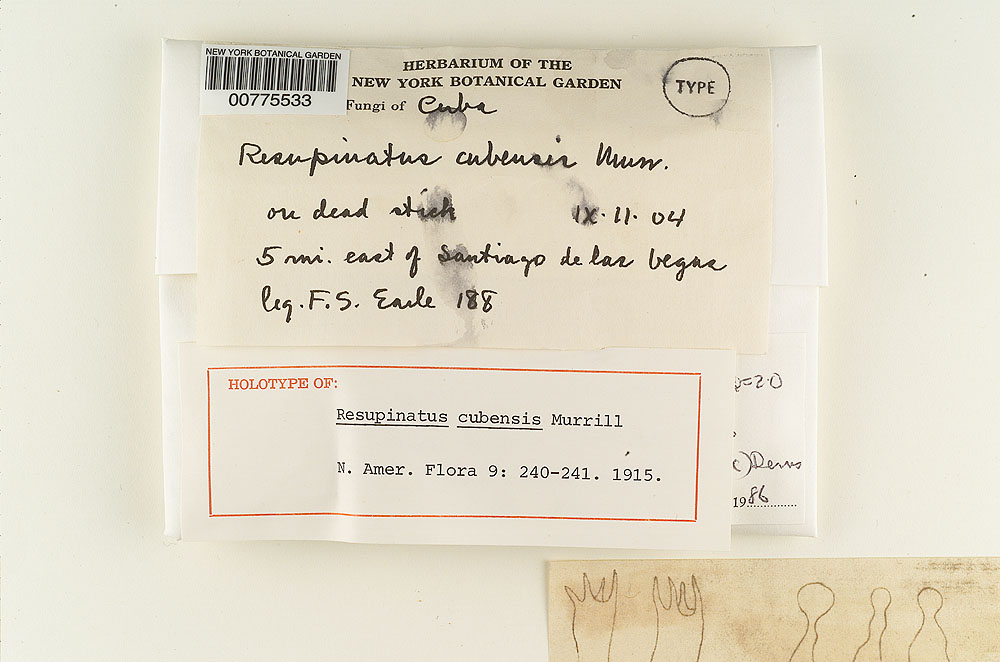 NEW YORK BOTANICAL GARDEN
00775533
HERBARIUM OF THE
NEW YORK BOTANICAL GARDEN
TYPE
Fungi of Cuba
Resupinatus cubensis Murr.
on dead stick IX.11.04
5 mi. east of Santiago de las Vegas
leg. F.S. Earle 188
HOLOTYPE OF:
Resupinatus cubensis Murrill
N. Amer. Flora 9: 240-241. 1915.
=2.0
1986